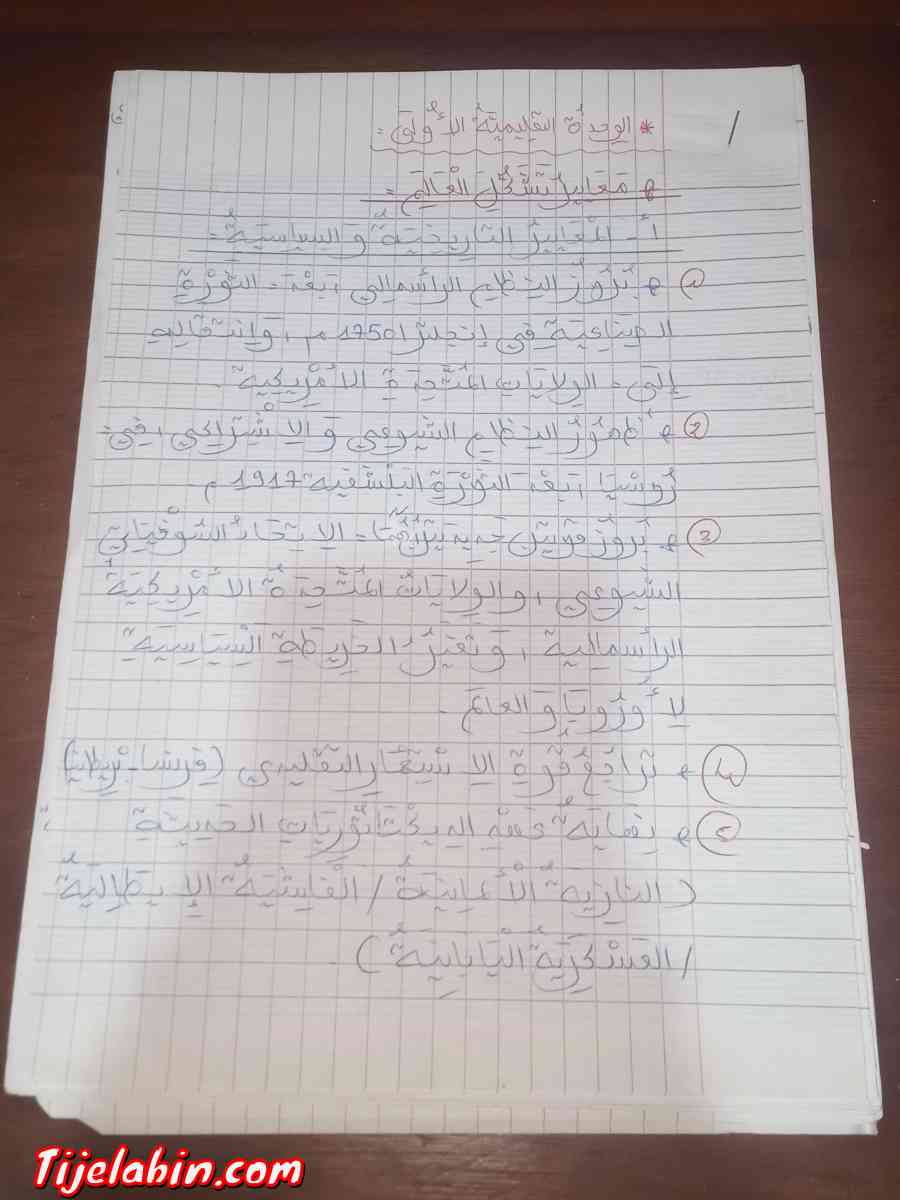 * الوحدة التعليمية الأولى =
معايير تشكل العالم =
أ - المعايير التاريخية والسياسية =
① بروز النظام الرأسمالي بعد = الثورة
الصناعية في إنجلترا 1750م، وانتقاله
إلى = الولايات المتحدة الأمريكية.
② ظهور النظام الشيوعي والاشتراكي في =
روسيا بعد الثورة البلشفية 1917م
③ بروز قوتين جديدتين هما = الاتحاد السوفياتي
الشيوعي، والولايات المتحدة الأمريكية
الرأسمالية، وتغير الخريطة السياسية
لأوروبا والعالم.
④ تراجع قوة الاستعمار التقليدي (فرنسا - بريطانيا)
⑤ نهاية عهد الديكتاتوريات الحديثة
(النازية الألمانية / الفاشية الإيطالية
/ العسكرية اليابانية).
Tijelabin.com